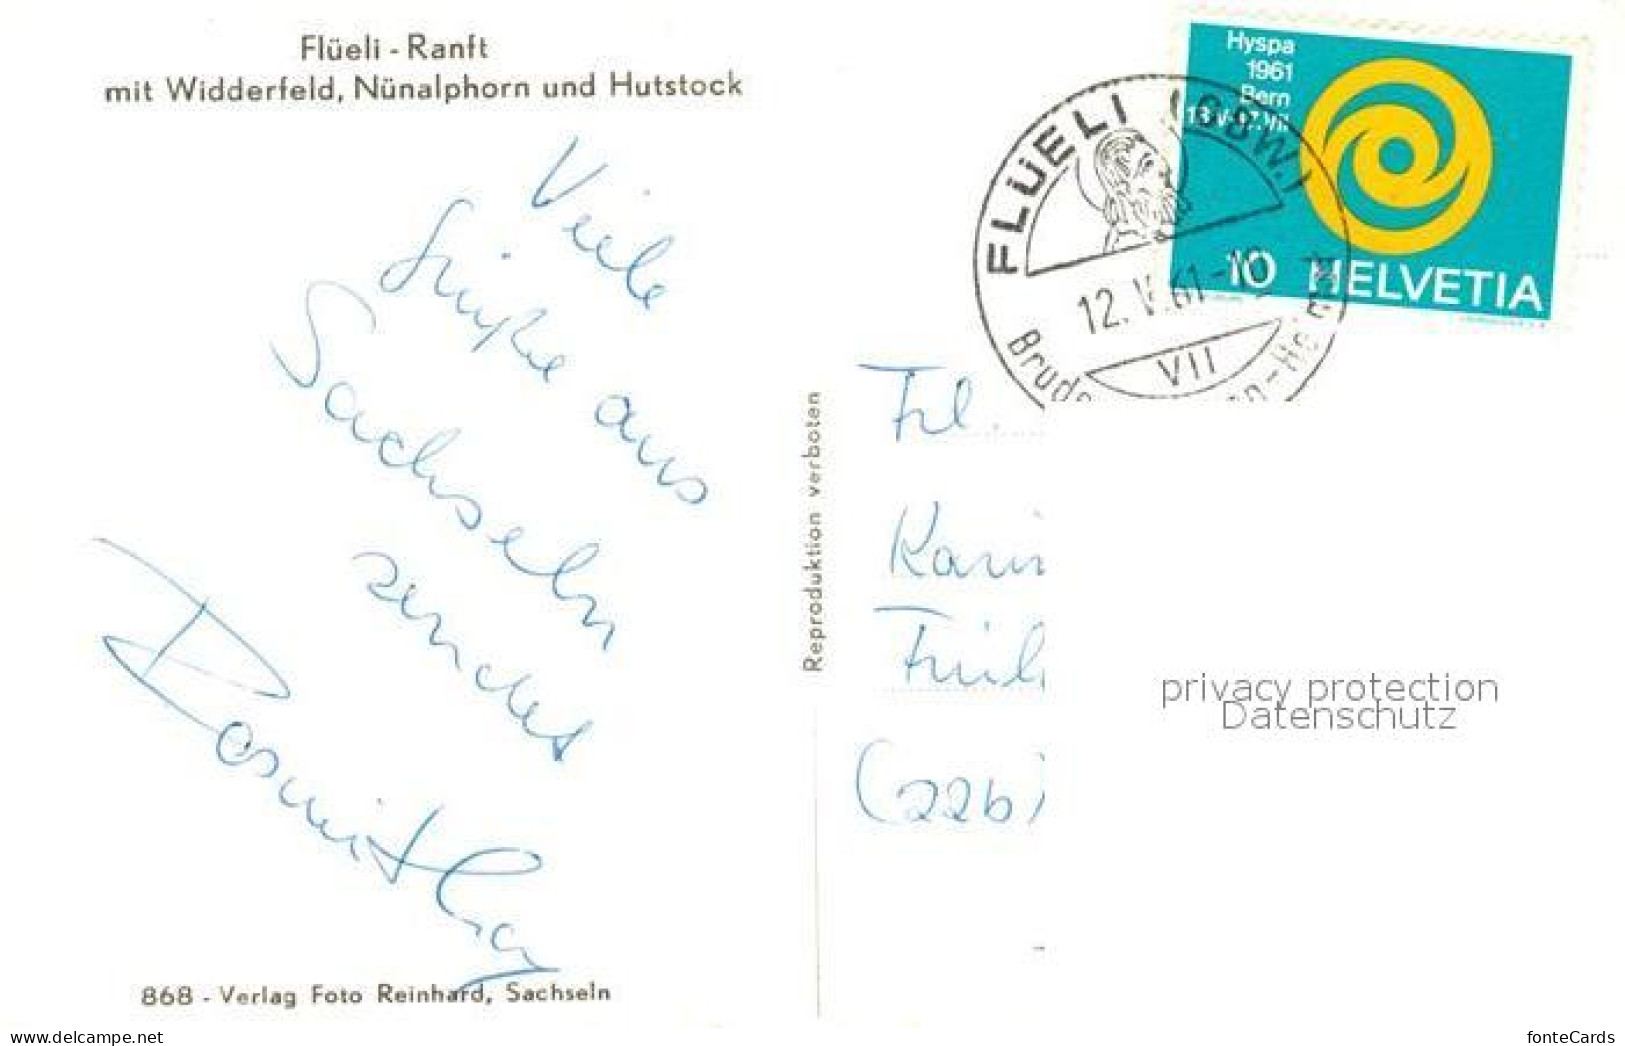 Flüeli - Ranft
mit Widderfeld, Nünalphorn und Hutstock
Viele
Grüße aus
Sachseln
sendet
Roswitha
868 - Verlag Foto Reinhard, Sachseln
Reproduktion verboten
Hyspa
1961
Bern
10 HELVETIA
FLÜELI (OBW.)
12. V. 61
VII
Frl.
(22b)
privacy protection
Datenschutz
www.delcampe.net
fonteCards